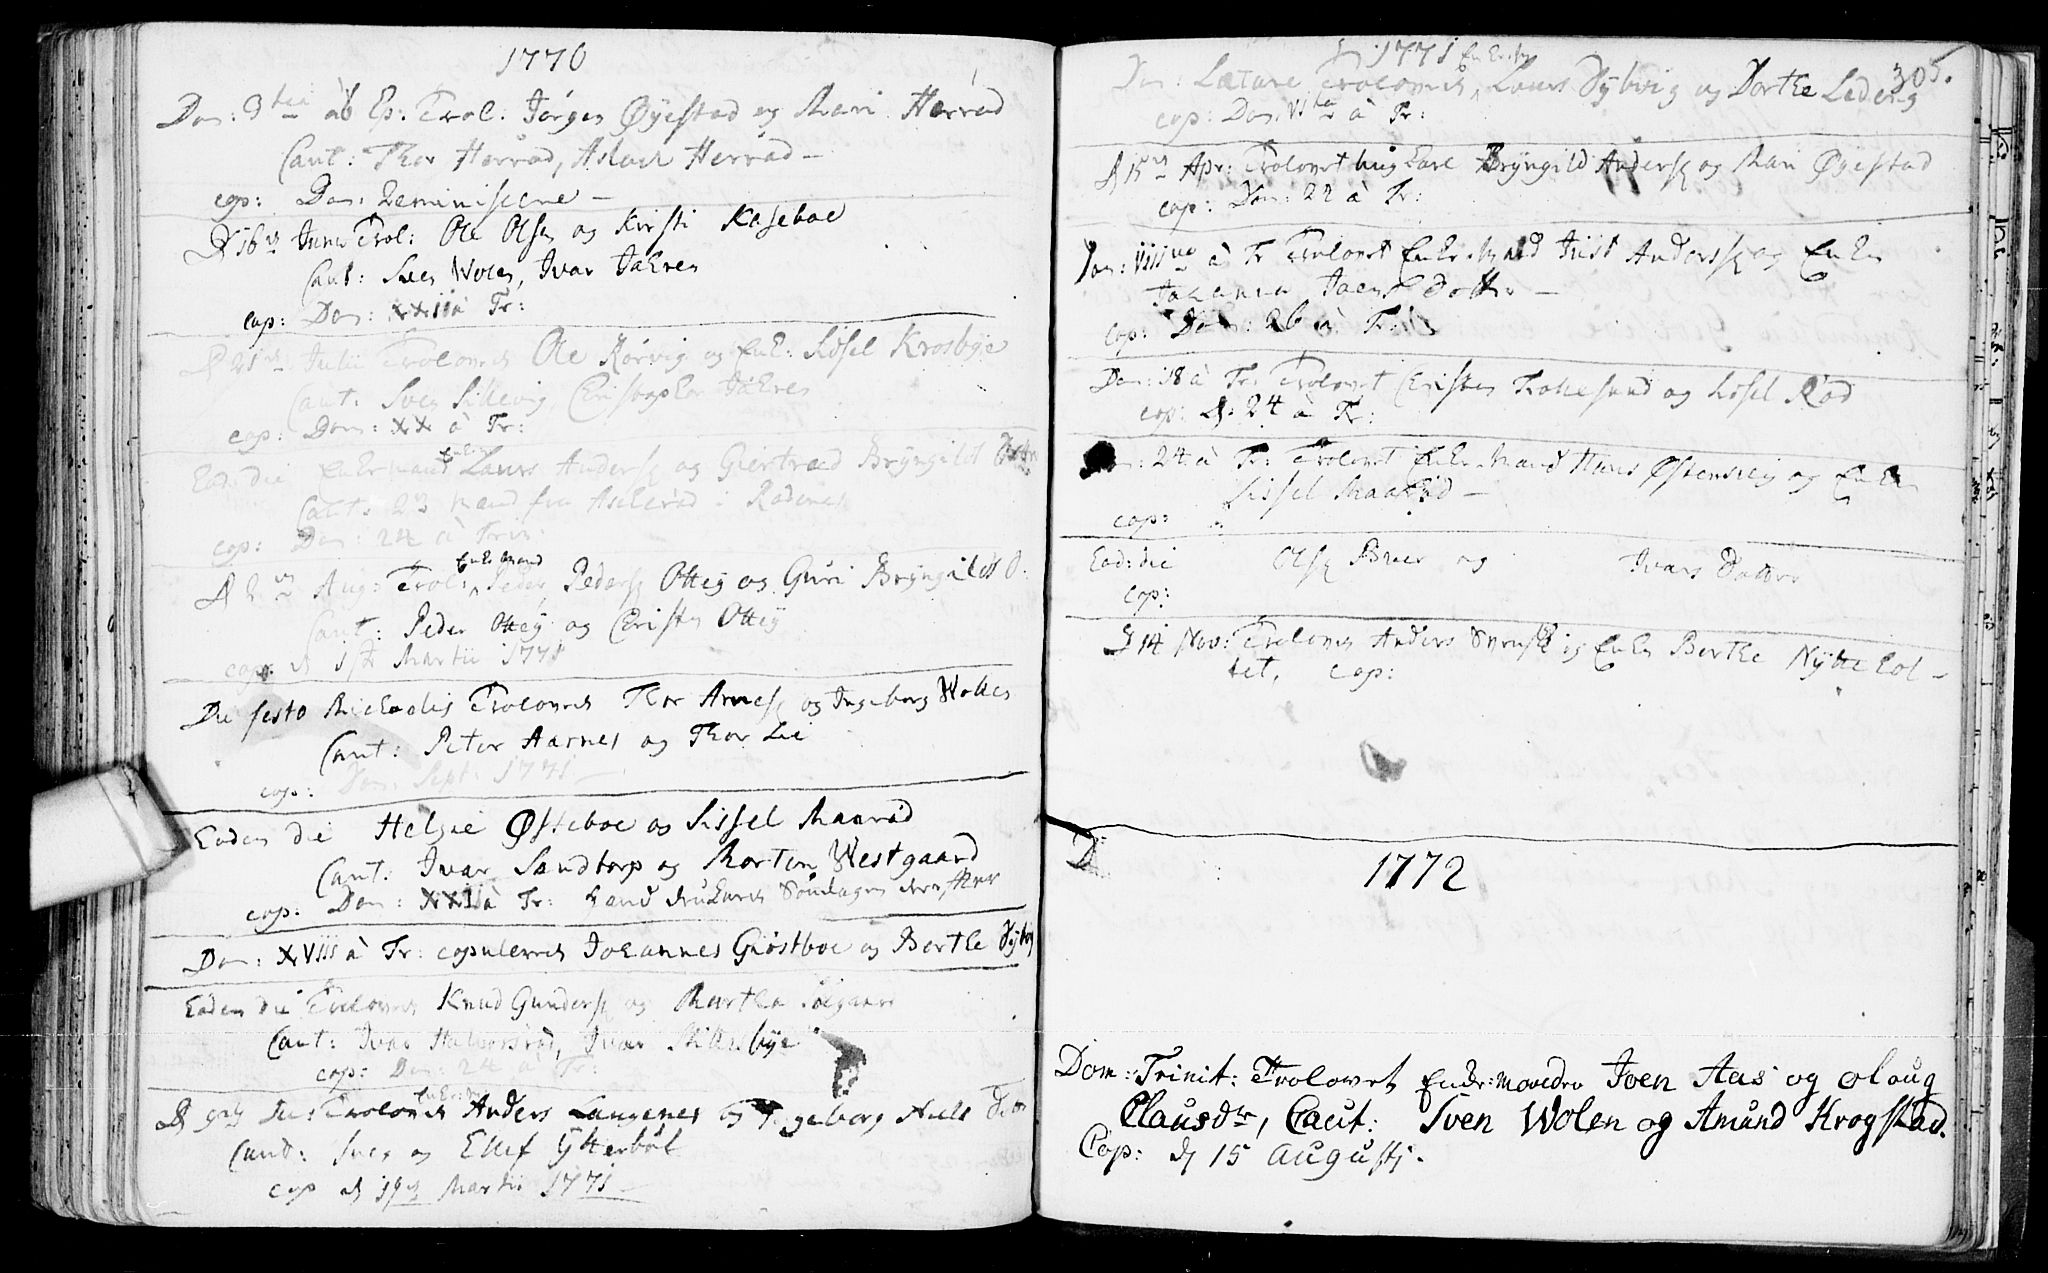 1770
Dom: 3tia ab Ep: Trol: Jørgen Øÿestad og Mari Herrad
Caut: Thor Herrad, Aslach Herrad –
cop: Dom: Reminiscere –
D 16de Junii Trol: Ole Olsen og Kirsti Kaseboe
Caut: Sven Wolen, Ivar Jahren
cop: Dom: XXII à Tr:
D 21de Julii Trolovet Ole Rørvig og Enke: Sissel Krosbÿe
Caut: Sven Sillevig, Christopher Jahren
cop: Dom: XX à Tr:
Eod: die Enkemand Laurs Andersen og Giertrud Brÿngilds
Caut: 2de Mænd fra Askerød i Rødenes
cop: Dom: 24 à Trin:
Enkemand
D 2den Aug: Trol: Peder Pedersen Otteÿ og Guri Brÿngilds D:
Caut: Peder Otteÿ og Christen Otteÿ
cop: d 1ste Martii 1771
Die festo Michaelis Trolovet Thor Arnesen og Ingeborg Wolles
Caut: Peter Aarnes og Thor Lie
cop: Dom: Sept: 1771
Eodem die Helgie Østeboe og Sissel Maarød
Caut: Ivar Sandtorp og Morten Westgaard
cop: Dom: XXII à Tr: Søndagen derefter
Dom: XVIII à Tr: copuleret Johannes Giøstboe og Berthe
Eodem die Trolovet Knud Gundersen og Martha
Caut: Ivar Halvorsrød, Ivar Millebÿe
cop: Dom: 24 à Tr:
D Trolovet Anders Langenes og Ingeborg Niels
Caut: Sven og Ellef Ÿtterbøl
cop d 19de Martii 1771
1771
305.
Dom: Lætare Trolovet Laurs Dÿbvig og Dorthe
cop: Dom: VIta à Tr:
D 15de Apr: Trolovet Brÿngild Andersen og Mari Øÿestad
cop: Dom: 22 à Tr:
Dom: VIIIva à Tr Trolovet Enkemand Just Anderssen og Enken
Johanna Joens Dotter –
cop: Dom: 26 à Tr:
Dom: 18 à Tr: Trolovet Christen Trollesund og Sissel Rød
cop: D: 24 à Tr:
Dom: 24 à Tr: Trolovet Enkemand Hans Østensvig og Enken
Sissel Maarød –
cop:
Eod: die Olsen Buer og Ivars Datter
cop:
D 14 Nov: Trolovet Anders og Enken Berthe Nÿtte hol-
tet, cop:
1772
Dom: Trinit: Trolovet Joen Aas og Olaug
Clausdtr, Caut: Sven Wolen og Amund Krogstad.
Cop: d 15 Augustj.